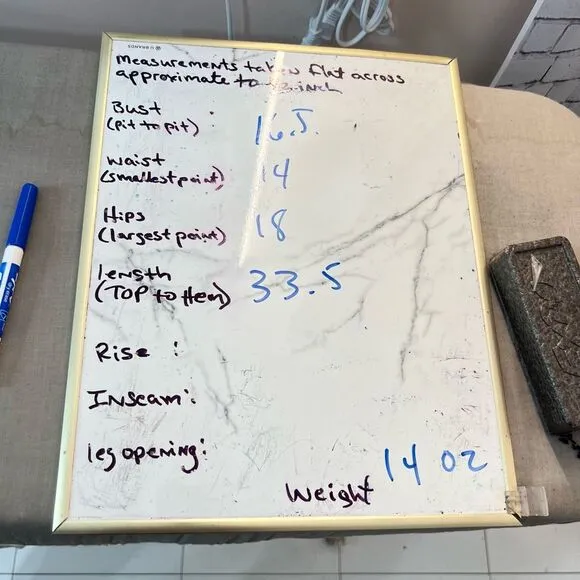 U BRANDS
Measurements taken flat across
approximate to inch
Bust 16.5
(pit to pit)
Waist 14
(smallest point)
Hips 18
(largest point)
length 33.5
(TOP to Hem)
Rise :
Inseam:
leg opening:
14 oz
Weight